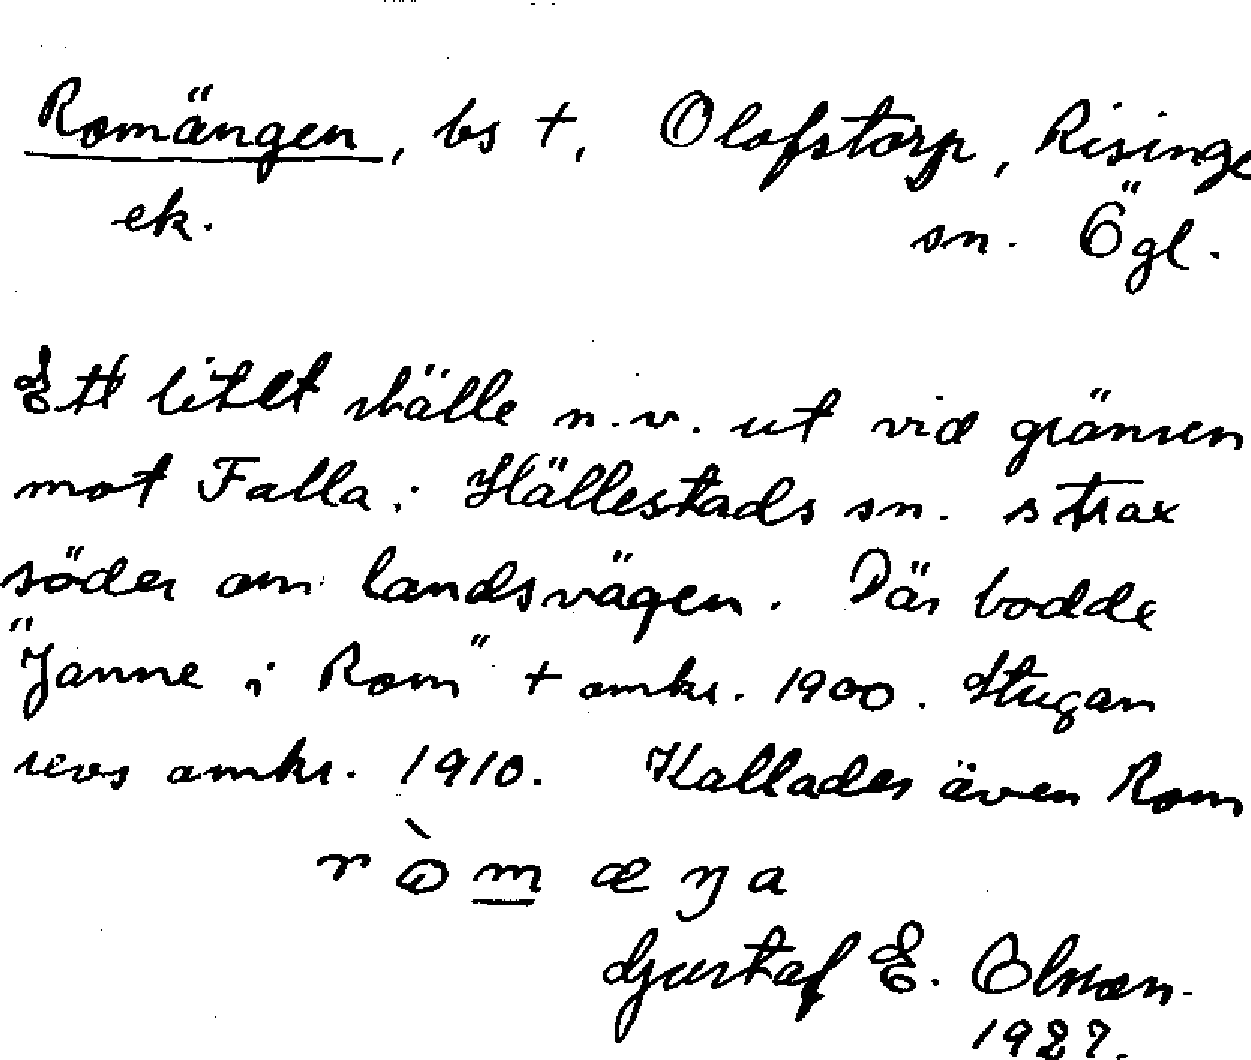 Romängen, bs †, Olofstorp, Risinge
ek. sn. Ögl.
Ett litet ställe n.v. ut vid gränsen
mot Falla i Hällestads sn. strax
söder om landsvägen. Där bodde
"Janne i Rom" † omkr. 1900. Stugan
revs omkr. 1910. Kallades även Rom
r ò m æ ŋ a
Gustaf E. Olsson.
1927.